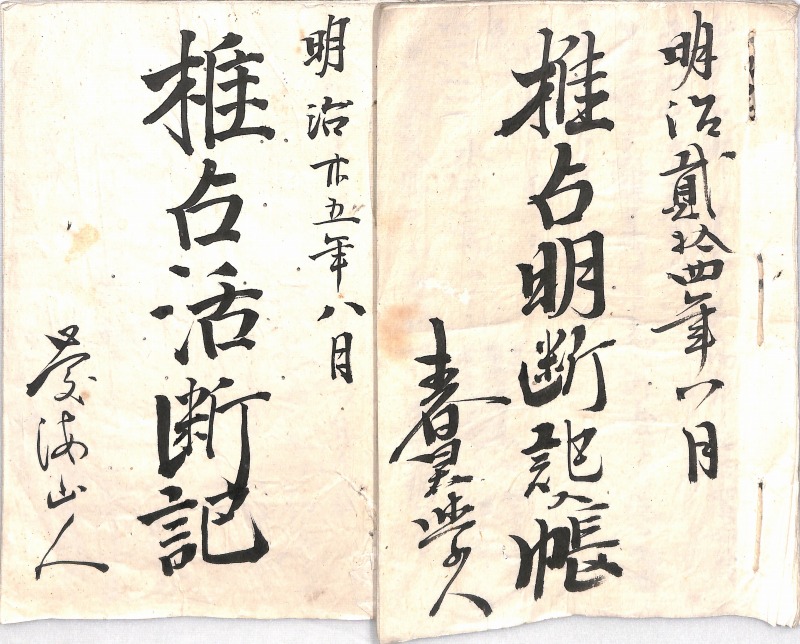 明治貳拾四年八月
推占明断記入帳
春學人
明治廿五年八月
推占活断記
海山人